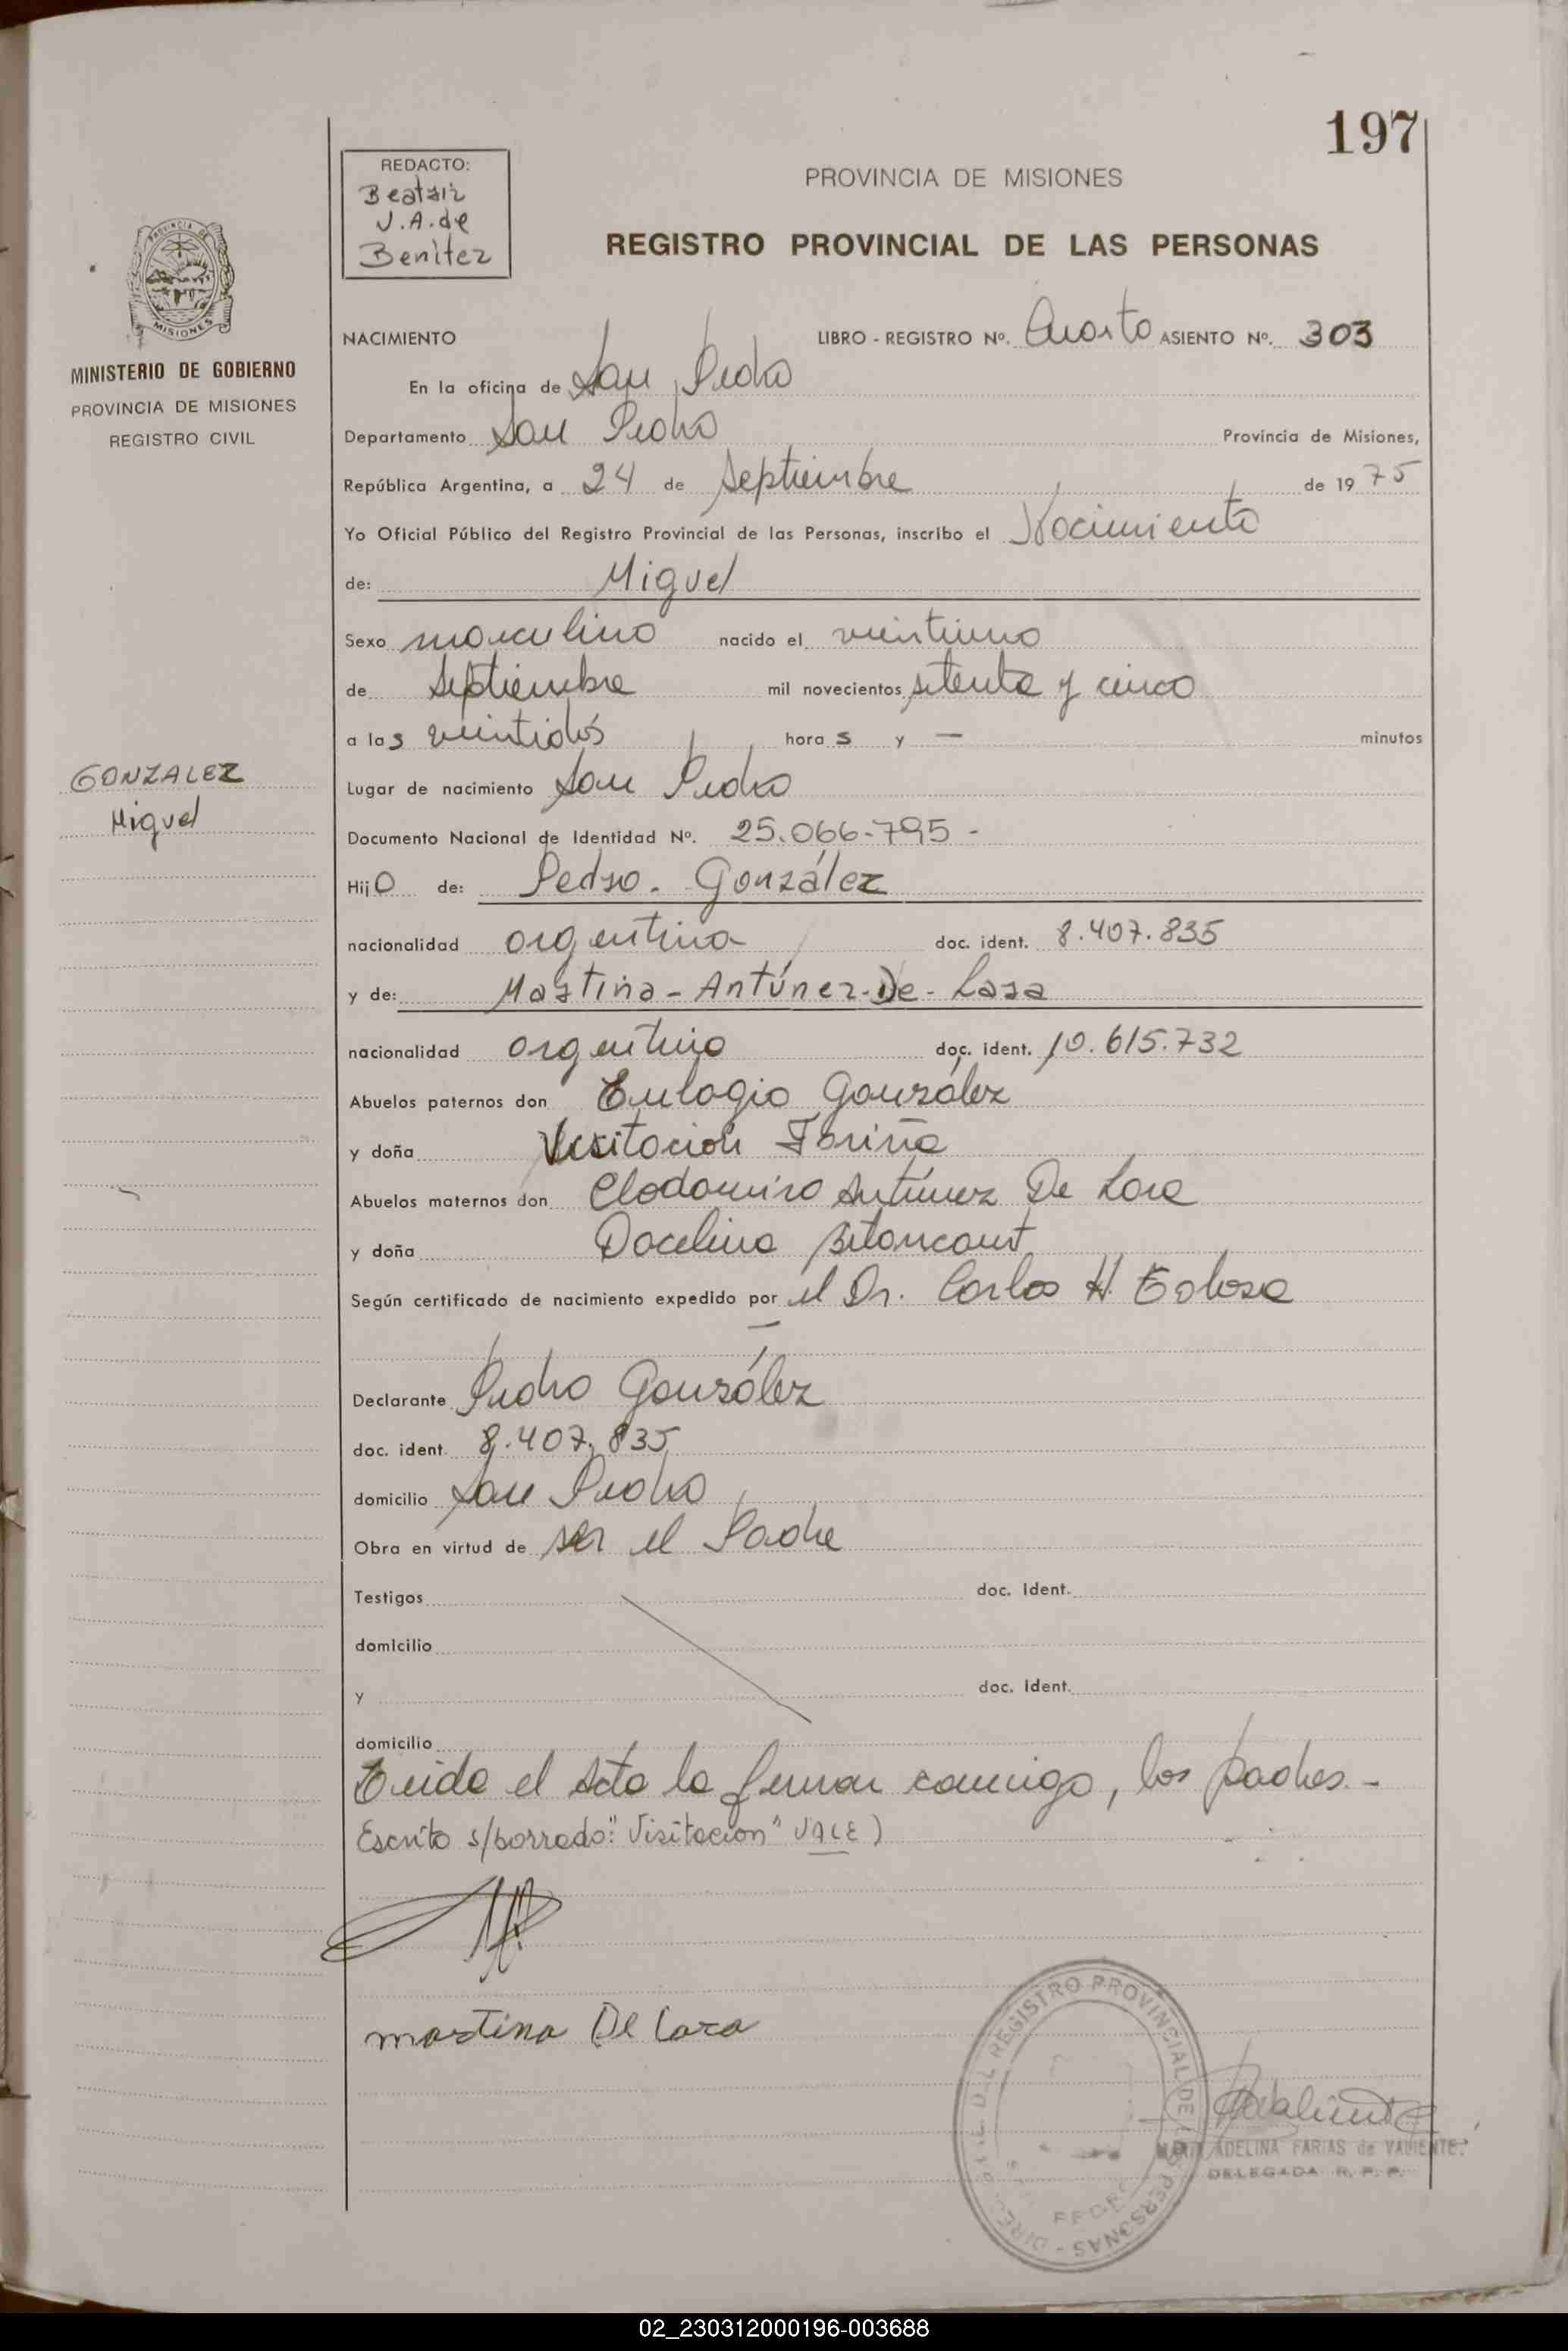 197
REDACTO:
Beatriz
J.A.de
Benitez
PROVINCIA DE MISIONES
REGISTRO PROVINCIAL DE LAS PERSONAS
PROVINCIA DE
MISIONES
MINISTERIO DE GOBIERNO
PROVINCIA DE MISIONES
REGISTRO CIVIL
NACIMIENTO LIBRO - REGISTRO Nº. Cuarto ASIENTO Nº. 303
En la oficina de San Pedro
Departamento San Pedro Provincia de Misiones,
República Argentina, a 24 de Septiembre de 1975
Yo Oficial Público del Registro Provincial de las Personas, inscribo el Nacimiento
de: Miguel
Sexo masculino nacido el veintiuno
de Septiembre mil novecientos setenta y cinco
a las veintidós horas y — minutos
GONZALEZ
Miguel
Lugar de nacimiento San Pedro
Documento Nacional de Identidad Nº. 25.066-795-
Hijo de: Pedro. González
nacionalidad argentina doc. ident. 8.407.835
y de: Martina-Antúnez-De-Lara
nacionalidad argentina doc. ident. 10.615.732
Abuelos paternos don Eulogio González
y doña Visitación Fariña
Abuelos maternos don Clodomiro Antúnez De Lara
y doña Docelina Bitancourt
Según certificado de nacimiento expedido por el Dr. Carlos H.
—
Declarante Pedro González
doc. ident. 8.407.835
domicilio San Pedro
Obra en virtud de ser el Padre
Testigos doc. ident.
domicilio
y doc. ident.
domicilio
Leida el Acta la firman conmigo, los padres.-
Escrito s/borrado: "Visitación" VALE)
Martina De Lara
REGISTRO PROVINCIAL DE LAS PERSONAS
MARIA ADELINA FARIAS de VALIENTE
DELEGADA R. P. P.
02_230312000196-003688